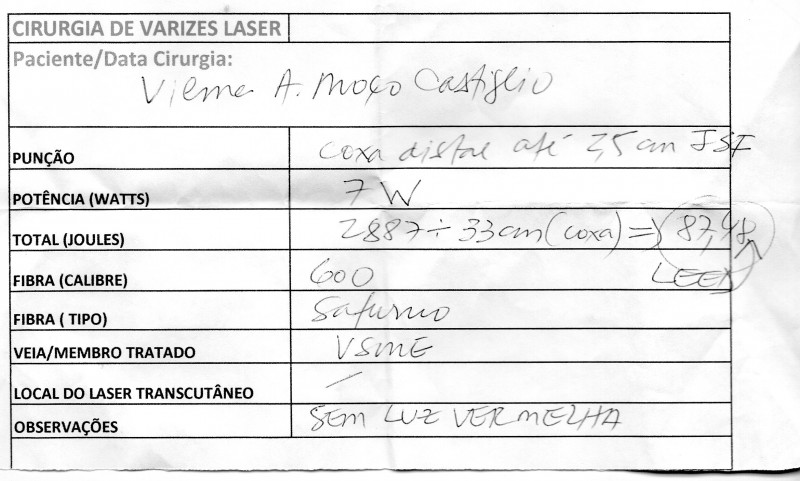 CIRURGIA DE VARIZES LASER
Paciente/Data Cirurgia:
Vilma A. Moço Castiglio
PUNÇÃO coxa distal até 2,5 cm JSF
POTÊNCIA (WATTS) 7 W
TOTAL (JOULES) 2887 ÷ 33 cm (coxa) => 87,48
FIBRA (CALIBRE) 600 LEED
FIBRA ( TIPO)
VEIA/MEMBRO TRATADO VSME
LOCAL DO LASER TRANSCUTÂNEO /
OBSERVAÇÕES SEM LUZ VERMELHA